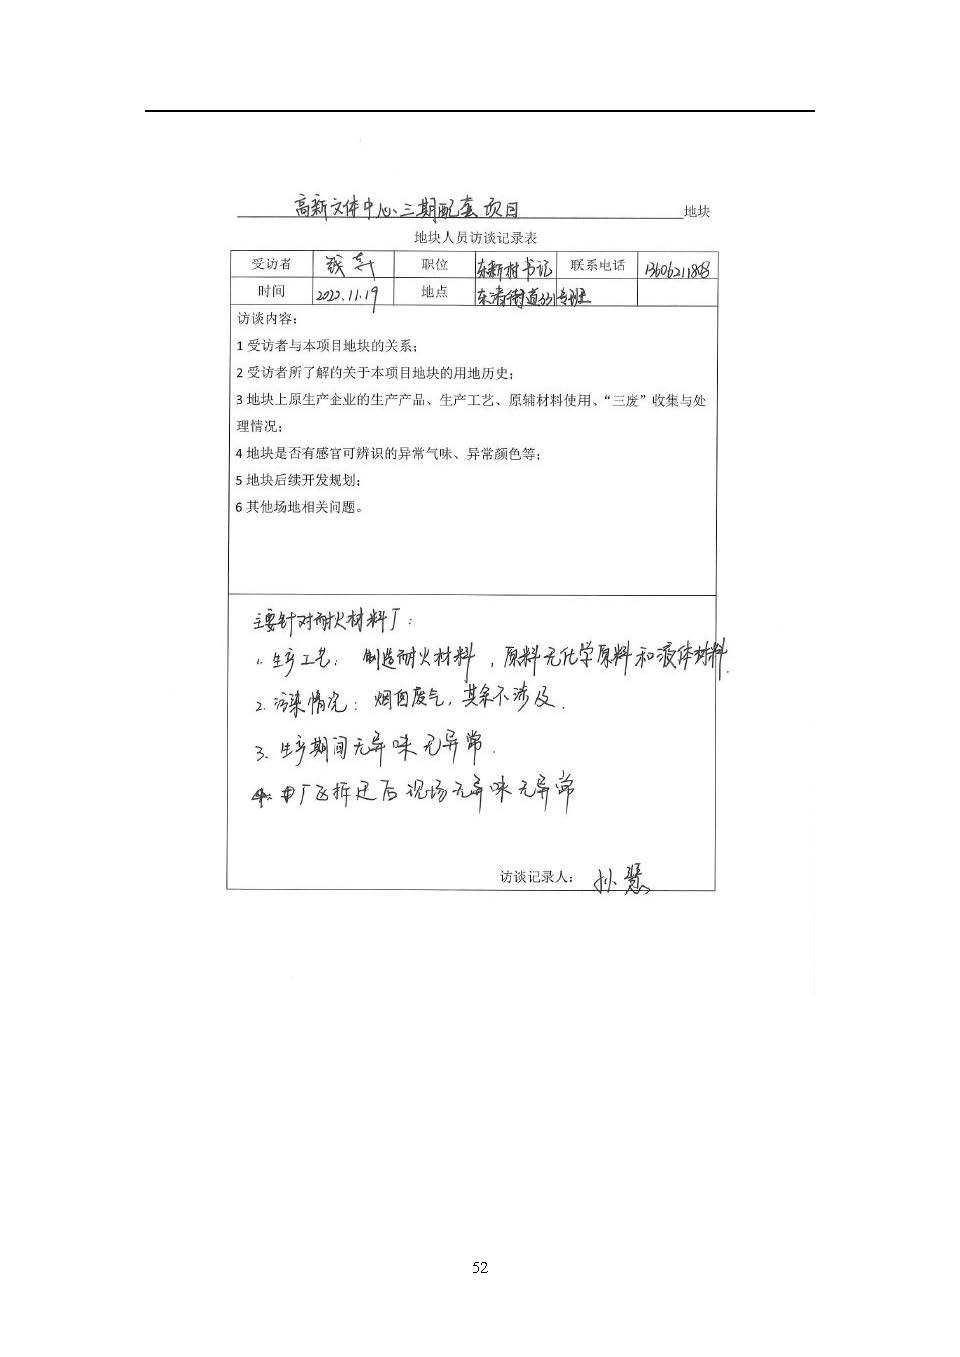 高新文体中心三期配套项目 地块
地块人员访谈记录表
受访者 钱 职位 东新村书记 联系电话 13606211808
时间 2022.11.19 地点 东渚街道331专班
访谈内容：
1 受访者与本项目地块的关系；
2 受访者所了解的关于本项目地块的用地历史；
3 地块上原生产企业的生产产品、生产工艺、原辅材料使用、“三废”收集与处
理情况；
4 地块是否有感官可辨识的异常气味、异常颜色等；
5 地块后续开发规划；
6 其他场地相关问题。
主要针对耐火材料厂：
1. 生产工艺：制造耐火材料，原料无化学原料和液体材料.
2. 污染情况：烟囱废气，其余不涉及.
3. 生产期间无异味无异常.
4. 厂区拆迁后现场无异味无异常
访谈记录人： 孙慧
52